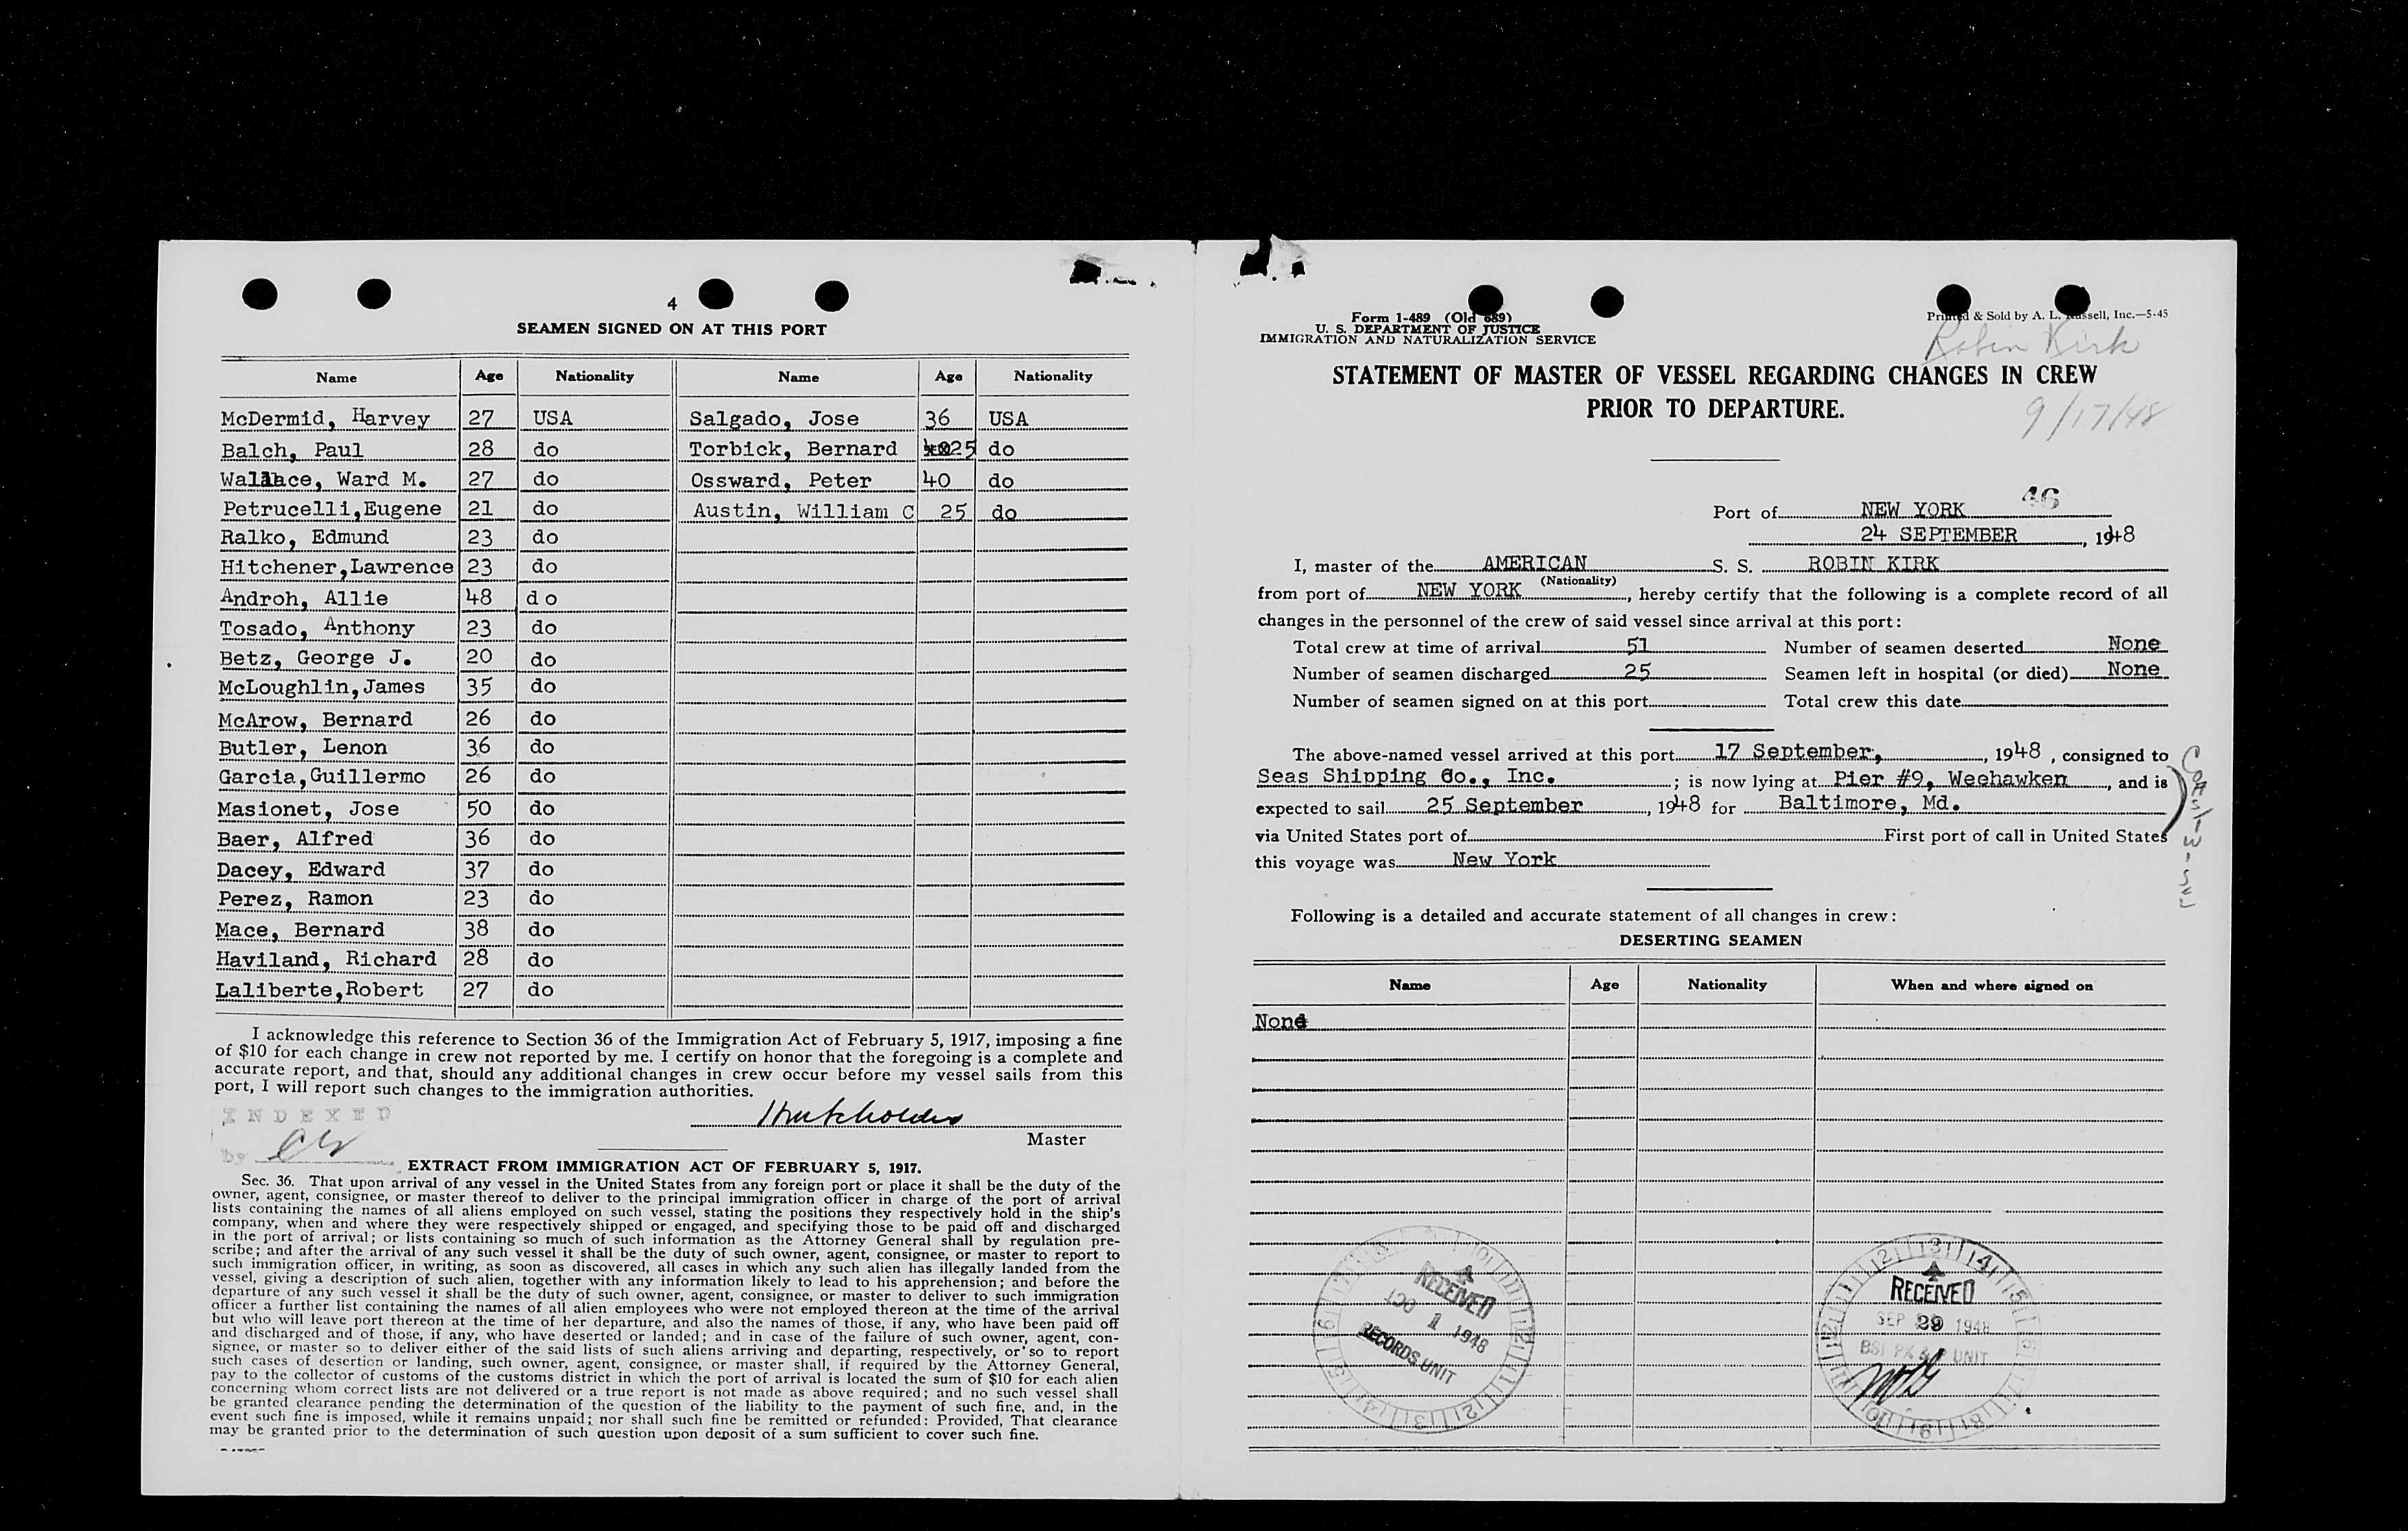 4
SEAMEN SIGNED ON AT THIS PORT
Name Age Nationality Name Age Nationality
McDermid, Harvey 27 USA Salgado, Jose 36 USA
Balch, Paul 28 do Torbick, Bernard 25 do
Wallace, Ward M. 27 do Ossward, Peter 40 do
Petrucelli,Eugene 21 do Austin, William C 25 do
Ralko, Edmund 23 do
Hitchener,Lawrence 23 do
Androh, Allie 48 do
Tosado, Anthony 23 do
Betz, George J. 20 do
McLoughlin,James 35 do
McArow, Bernard 26 do
Butler, Lenon 36 do
Garcia,Guillermo 26 do
Masionet, Jose 50 do
Baer, Alfred 36 do
Dacey, Edward 37 do
Perez, Ramon 23 do
Mace, Bernard 38 do
Haviland, Richard 28 do
Laliberte,Robert 27 do
I acknowledge this reference to Section 36 of the Immigration Act of February 5, 1917, imposing a fine
of $10 for each change in crew not reported by me. I certify on honor that the foregoing is a complete and
accurate report, and that, should any additional changes in crew occur before my vessel sails from this
port, I will report such changes to the immigration authorities.
INDEXED
by
Master
EXTRACT FROM IMMIGRATION ACT OF FEBRUARY 5, 1917.
Sec. 36. That upon arrival of any vessel in the United States from any foreign port or place it shall be the duty of the
owner, agent, consignee, or master thereof to deliver to the principal immigration officer in charge of the port of arrival
lists containing the names of all aliens employed on such vessel, stating the positions they respectively hold in the ship's
company, when and where they were respectively shipped or engaged, and specifying those to be paid off and discharged
in the port of arrival; or lists containing so much of such information as the Attorney General shall by regulation pre-
scribe; and after the arrival of any such vessel it shall be the duty of such owner, agent, consignee, or master to report to
such immigration officer, in writing, as soon as discovered, all cases in which any such alien has illegally landed from the
vessel, giving a description of such alien, together with any information likely to lead to his apprehension; and before the
departure of any such vessel it shall be the duty of such owner, agent, consignee, or master to deliver to such immigration
officer a further list containing the names of all alien employees who were not employed thereon at the time of the arrival
but who will leave port thereon at the time of her departure, and also the names of those, if any, who have been paid off
and discharged and of those, if any, who have deserted or landed; and in case of the failure of such owner, agent, con-
signee, or master so to deliver either of the said lists of such aliens arriving and departing, respectively, or so to report
such cases of desertion or landing, such owner, agent, consignee, or master shall, if required by the Attorney General,
pay to the collector of customs of the customs district in which the port of arrival is located the sum of $10 for each alien
concerning whom correct lists are not delivered or a true report is not made as above required; and no such vessel shall
be granted clearance pending the determination of the question of the liability to the payment of such fine, and, in the
event such fine is imposed, while it remains unpaid; nor shall such fine be remitted or refunded: Provided, That clearance
may be granted prior to the determination of such question upon deposit of a sum sufficient to cover such fine.
Form 1-489 (Old 689)
U. S. DEPARTMENT OF JUSTICE
IMMIGRATION AND NATURALIZATION SERVICE
Printed & Sold by A. L. Russell, Inc.—5-45
Robin Kirk
STATEMENT OF MASTER OF VESSEL REGARDING CHANGES IN CREW
PRIOR TO DEPARTURE.
9/17/48
46
Port of NEW YORK
24 SEPTEMBER, 1948
I, master of the AMERICAN S. S. ROBIN KIRK
(Nationality)
from port of NEW YORK, hereby certify that the following is a complete record of all
changes in the personnel of the crew of said vessel since arrival at this port:
Total crew at time of arrival 51 Number of seamen deserted None
Number of seamen discharged 25 Seamen left in hospital (or died) None
Number of seamen signed on at this port Total crew this date
The above-named vessel arrived at this port 17 September, 1948, consigned to
Seas Shipping Co., Inc.; is now lying at Pier #9, Weehawken, and is
expected to sail 25 September, 1948 for Baltimore, Md.
via United States port of First port of call in United States
this voyage was New York
Following is a detailed and accurate statement of all changes in crew:
DESERTING SEAMEN
Name Age Nationality When and where signed on
None
RECEIVED
OCT 1 1948
RECORDS UNIT
RECEIVED
SEP 29 1948
UNIT